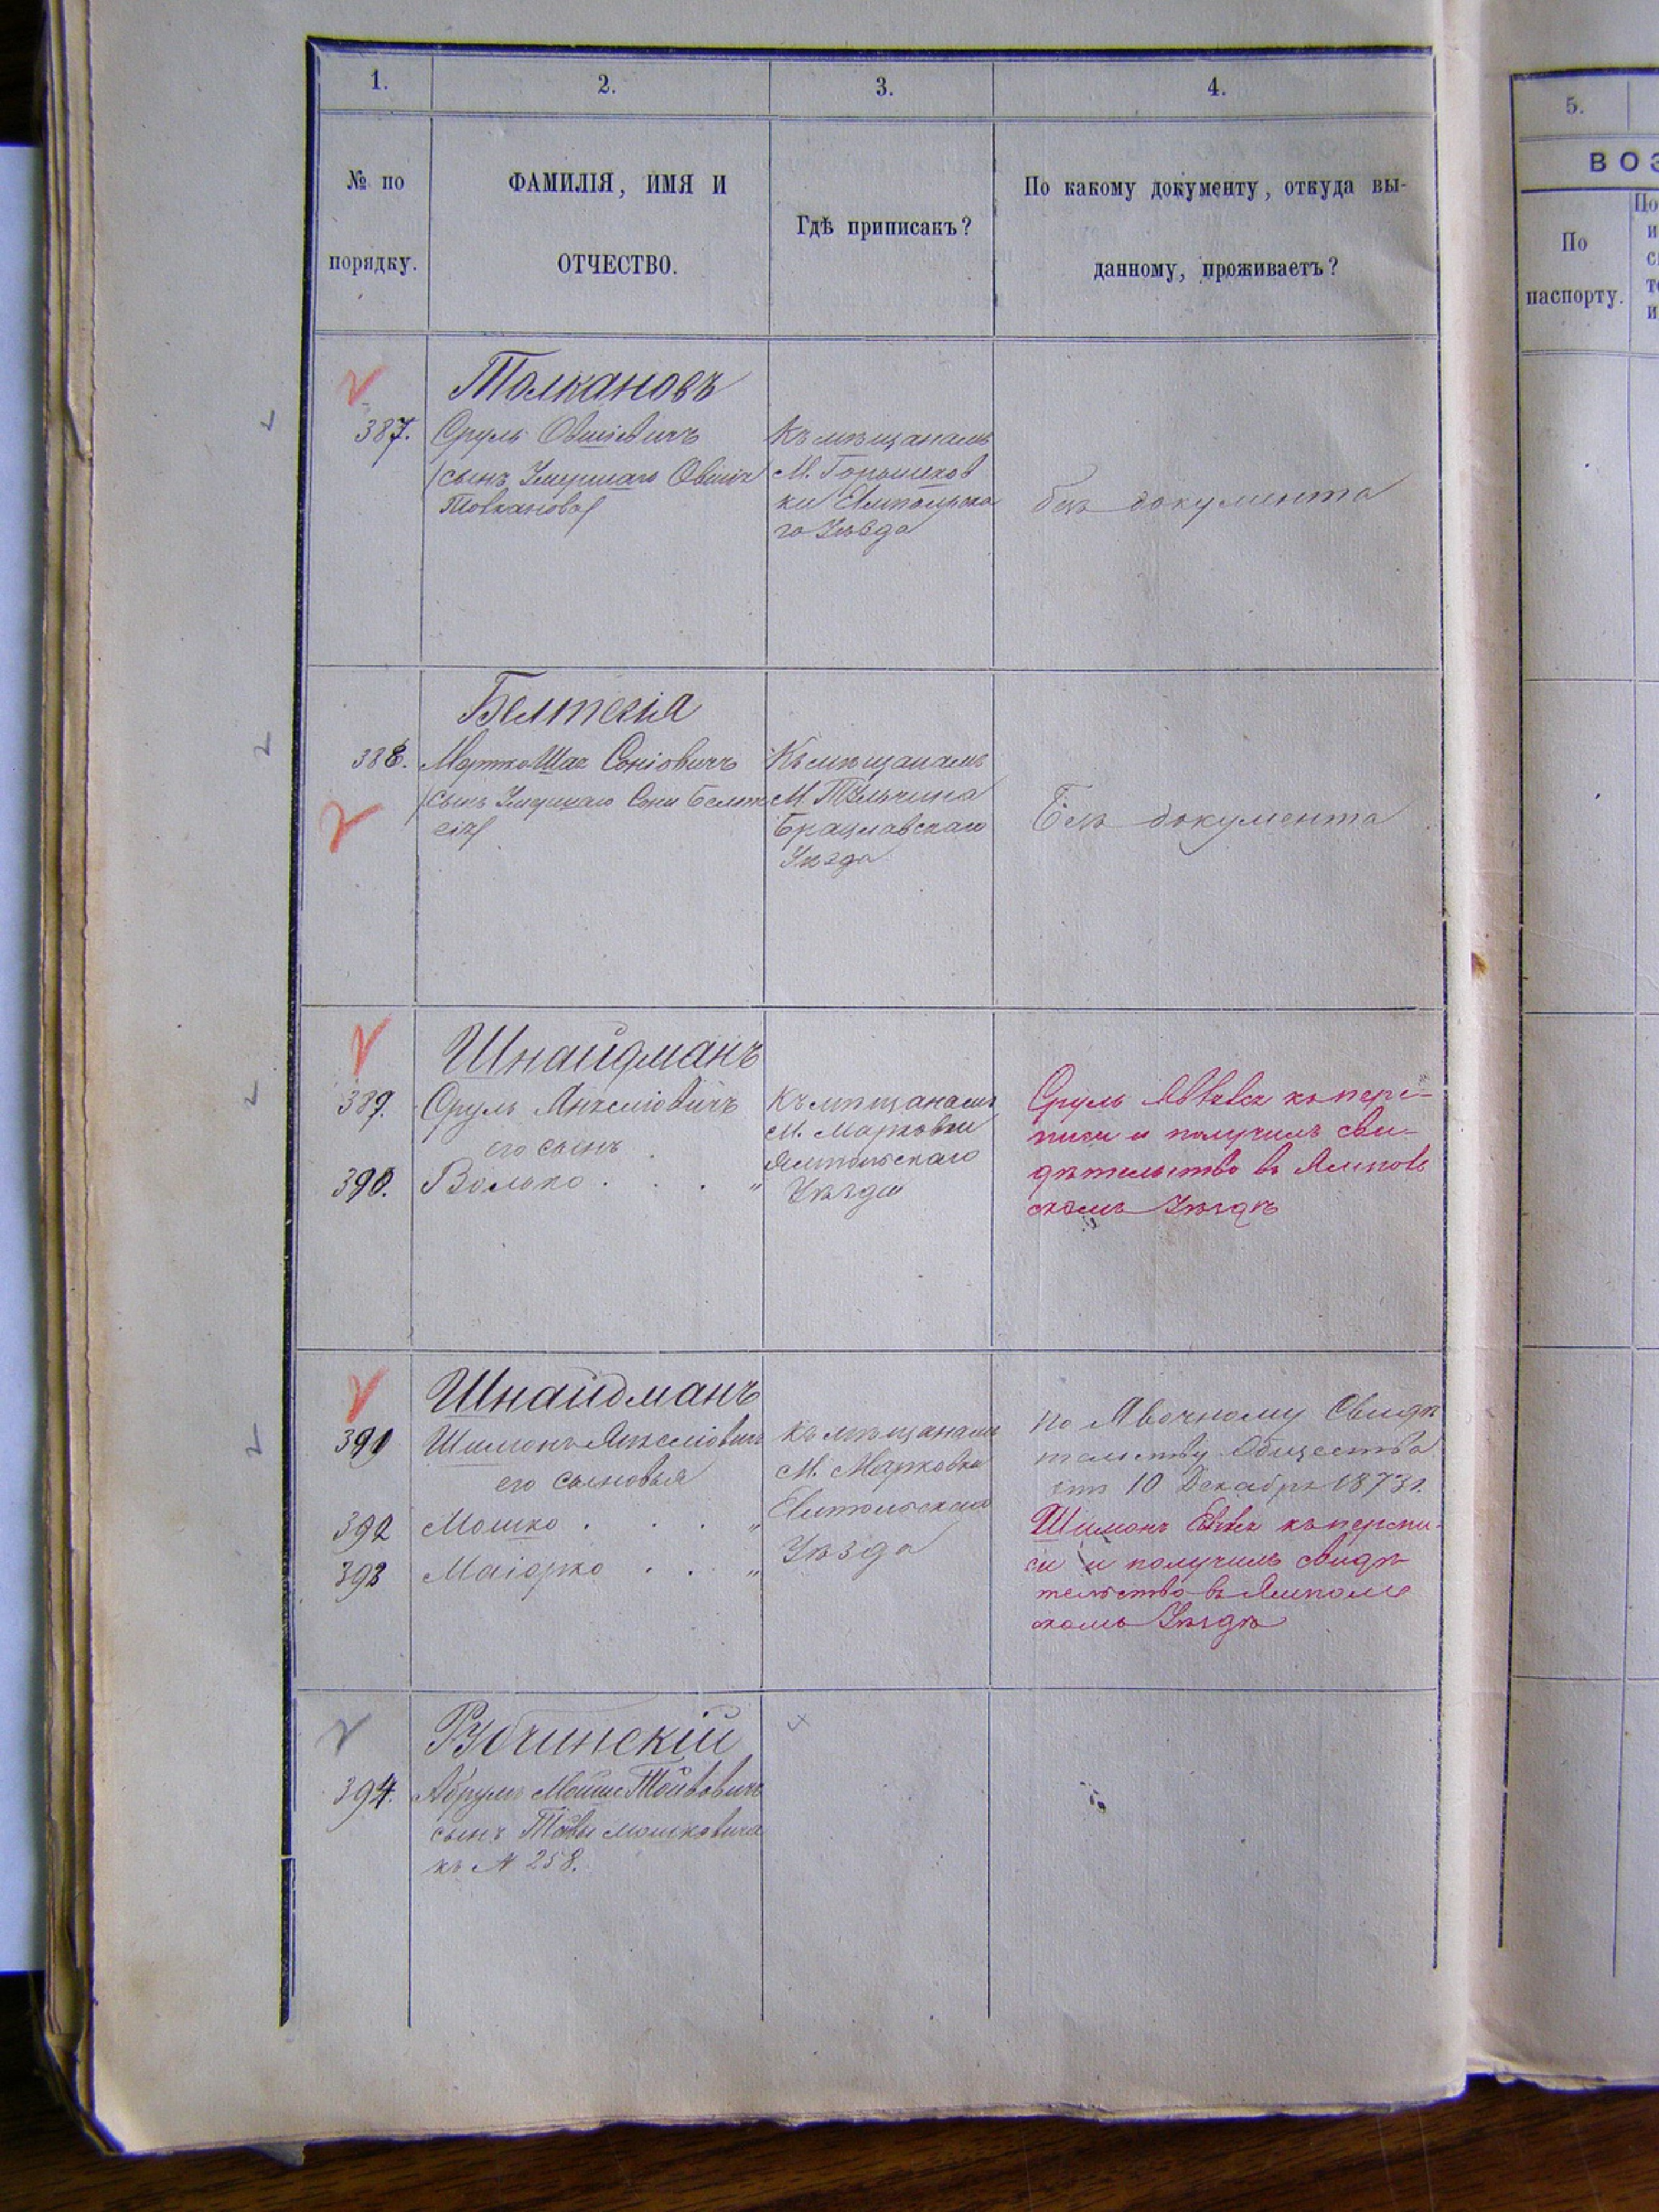 1.
2.
3.
4.
№ по
порядку.
ФАМИЛІЯ, ИМЯ И
ОТЧЕСТВО.
Гдѣ приписанъ?
По какому документу, откуда вы-
данному, проживаетъ?
5.
ВОЗ
По
паспорту.
Толкановъ
387. Сруль Овшіевичъ
(сынъ Умершаго Овшія
Товканова)
Къ мѣщанамъ
М. Горышков
ки Ямпольска
го Уѣзда
безъ документа
388.
Шая Соніовичъ
(сынъ Умершаго Сони
Къ мѣщанамъ
М. Тульчина
Брацлавскаго
Уѣзда
Безъ документа
Шнайдманъ
389. Сруль Анкеліовичъ
его сынъ
390. Волько . . . "
Къ мѣщанамъ
М. Марковки
Ямпольскаго
Уѣзда
Сруль явился къ пере-
писи и получилъ сви-
дѣтельство въ Ямполь
скомъ Уѣздѣ
Шнайдманъ
391 Шимонъ Анкеліовичъ
его сыновья
392 Мошко . . . "
393 Маіорко . . "
къ мѣщанамъ
М. Марковки
Ямпольскаго
Уѣзда
по Явочному Свидѣ
тельству Общества
отъ 10 Декабря 1873 г.
Шимонъ явился къ перепи-
си и получилъ свидѣ
тельство въ Ямполь
скомъ Уѣздѣ
Рубчинскій
394. Абрумъ Мойше Тойвовичъ
сынъ Тойвы Мошковича
къ № 258.